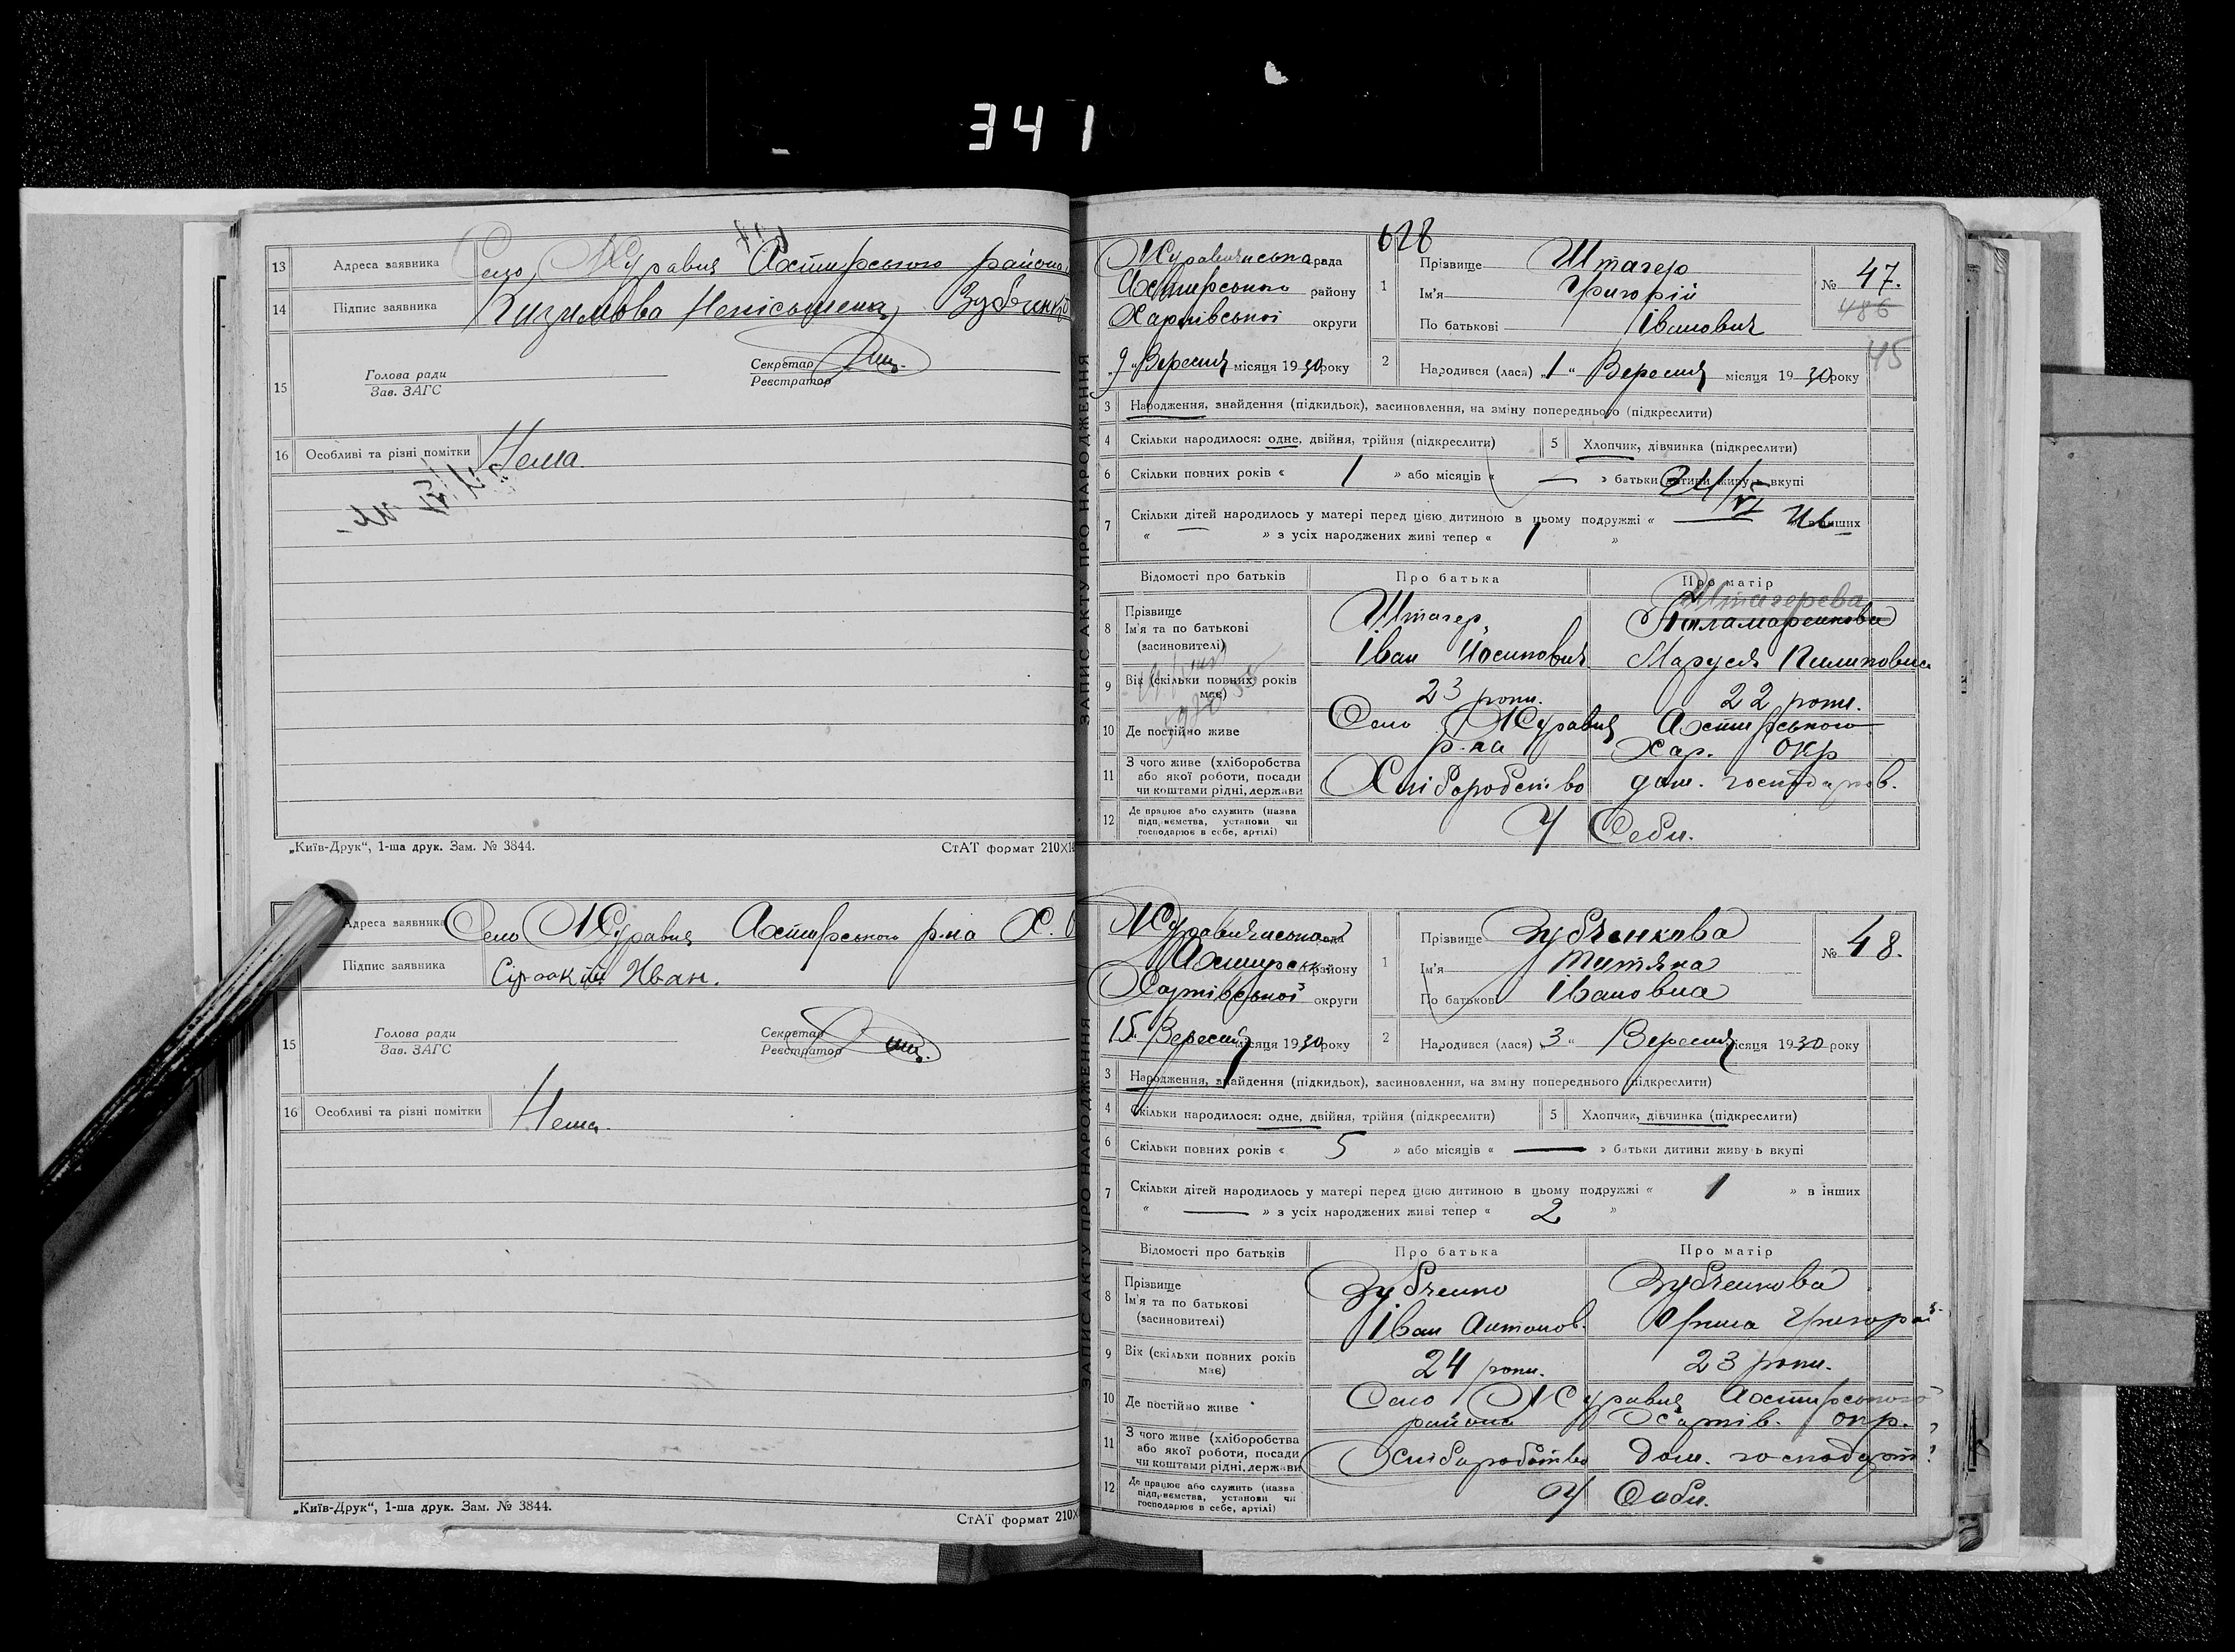 341
13 Адреса заявника Село Журавня Ахтирського района
14 Підпис заявника Зубченко
15 Голова ради Зав. ЗАГС Секретар Реєстратор
16 Особливі та різні помітки Нема.
„Київ-Друк“, 1-ша друк. Зам. № 3844. СтАТ формат 210X14
Адреса заявника Село Журавня Ахтирського р-на Х.
Підпис заявника Иван.
15 Голова ради Зав. ЗАГС Секретар Реєстратор
16 Особливі та різні помітки Нема.
„Київ-Друк“, 1-ша друк. Зам. № 3844.
СтАТ формат 210X
ЗАПИС АКТУ ПРО НАРОДЖЕННЯ
628
рада
Ахтирського району
Харківської округи
„9“ Вересня місяця 1930 року
1 Прізвище Штагер
Ім'я Григорій
По батькові Іванович
№ 47.
486
45
2 Народився (лася) „1“ Вересня місяця 1930 року
3 Народження, знайдення (підкидьок), засиновлення, на зміну попереднього (підкреслити)
4 Скільки народилося: одне, двійня, трійня (підкреслити) 5 Хлопчик, дівчинка (підкреслити)
6 Скільки повних років « 1 » або місяців « — » батьки дитини живуть вкупі
7 Скільки дітей народилось у матері перед цією дитиною в цьому подружжі « — » в інших
« — » з усіх народжених живі тепер « 1 »
Відомості про батьків Про батька Про матір
8 Прізвище Ім'я та по батькові (засиновителі)
Штагер Іван Йосипович
Штагерева
Паламаренкова
Маруся Пилиповна
9 Вік (скільки повних років має) 23 роки. 22 роки.
10 Де постійно живе Село Журавня Ахтирського
р-на Хар. окр
11 З чого живе (хліборобства або якої роботи, посади чи коштами рідні, держави Хліборобство дом. господарств.
12 Де працює або служить (назва підприємства, установи чи господарює в себе, артілі) У Себе.
ЗАПИС АКТУ ПРО НАРОДЖЕННЯ
рада
Ахтирськ. району
Харківської округи
15 Вересня місяця 1930 року
1 Прізвище Зубченкова
Ім'я Титяна
По батькові Івановна
№ 48.
2 Народився (лася) „3“ Вересня місяця 1930 року
3 Народження, знайдення (підкидьок), засиновлення, на зміну попереднього (підкреслити)
4 Скільки народилося: одне, двійня, трійня (підкреслити) 5 Хлопчик, дівчинка (підкреслити)
6 Скільки повних років « 5 » або місяців « — » батьки дитини живуть вкупі
7 Скільки дітей народилось у матері перед цією дитиною в цьому подружжі « 1 » в інших
« — » з усіх народжених живі тепер « 2 »
Відомості про батьків Про батька Про матір
8 Прізвище Ім'я та по батькові (засиновителі)
Зубченко Зубченкова
Іван Антонов. Орина Григорої
9 Вік (скільки повних років має) 24 роки. 23 роки.
10 Де постійно живе Село Журавня Ахтирського
района Харків. окр.
11 З чого живе (хліборобства або якої роботи, посади чи коштами рідні, держави Хліборобство Дом. господарст.
12 Де працює або служить (назва підприємства, установи чи господарює в себе, артілі) У Себе.